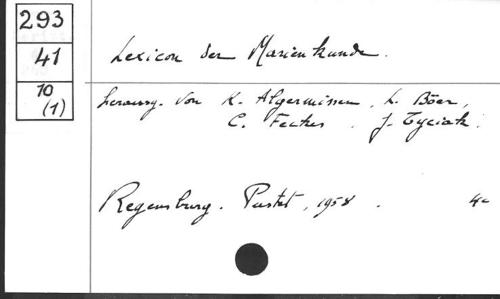 293
41
10
(1)
Lexicon der Marienkunde.
herausg. von K. Algermissen, L. Böer,
C. Feckes. J. Tyciak.
Regensburg. Pustet, 1958. 4°